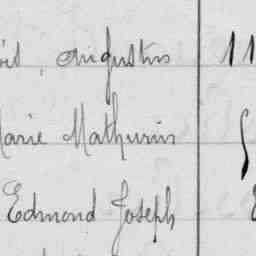 Augustin 11
Marie Mathurin
Edmond Joseph